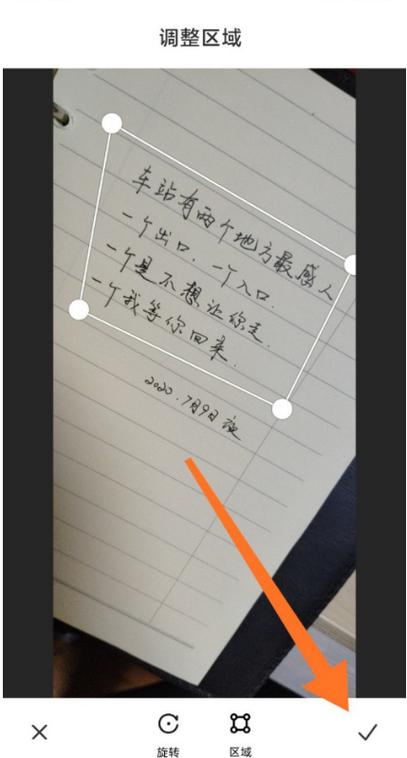 调整区域
车站有两个地方最感人
一个出口.一个入口.
一个是不想让你走.
一个我等你回来.
2020.7月9日 夜
旋转
区域